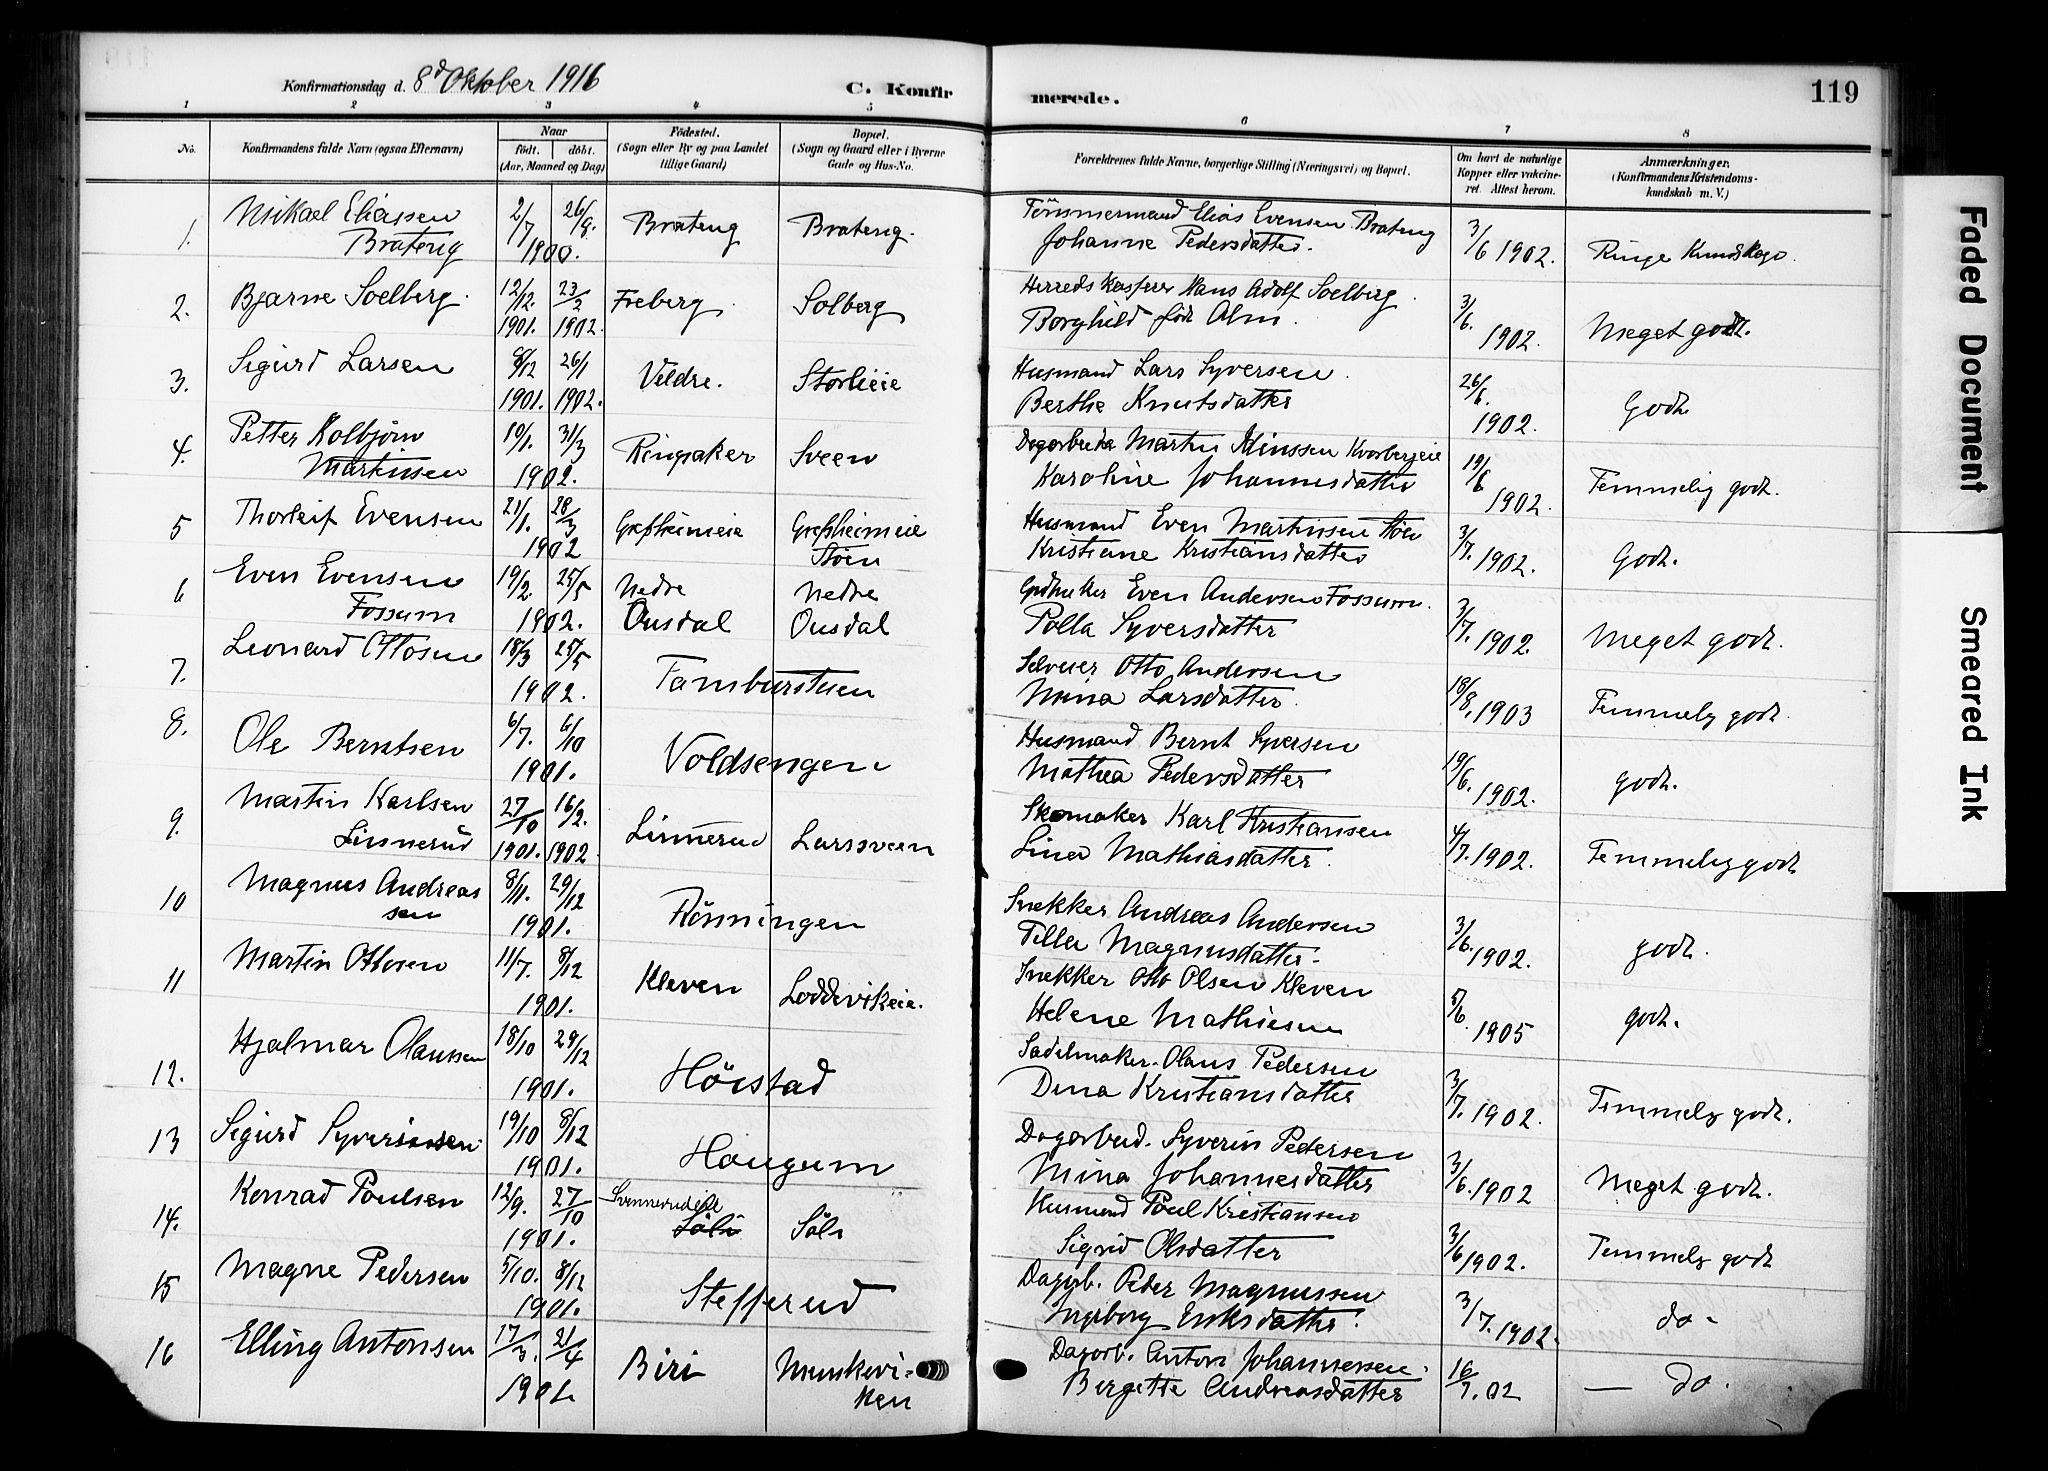 Konfirmationsdag d. 8d Oktober 1916
C. Konfir merede.
119
1 2 3 4 5 6 7 8
No.
Konfirmandens fulde Navn (ogsaa Efternavn)
Naar
født. døbt.
(Aar, Maaned og Dag)
Fødested.
(Sogn eller By og paa Landet
tillige Gaard)
Bopæl.
(Sogn og Gaard eller i Byerne
Gade og Hus-No.
Forældrenes fulde Navne, borgerlige Stilling (Næringsvei) og Bopæl.
Om havt de naturlige
Kopper eller vakcine-
ret. Attest herom.
Anmærkninger.
(Konfirmandens Kristendoms-
kundskab m. V.)
1. Mikael Eliassen 2/7 26/8. Brateng Brateng. Tömmermand Elias Evensen Brateng 3/6 1902. Ringe Kundskap.
Brateng 1900. Johanne Pedersdatter.
2. Bjarne Soelberg. 12/12. 23/2 Freberg Solberg Herreds kasserer Hans Adolf Soelberg 3/6. Meget godt.
1901. 1902. Borghild föd Alm. 1902.
3. Sigurd Larsen 8/12 26/1 Veldre. Storlieie Husmand Lars Syversen. 26/6. Godt
1901. 1902. Berthe Knutsdatter 1902.
4. Petter Kolbjörn 10/1. 31/3 Ringsaker Sveen Martin 19/6 Temmelig godt.
Martinsen 1902. Karoline Johannesdatter 1902.
5 Thorleif Evensen 21/1. 28/3 Husmand Even Martinsen 3/7. Godt.
1902 Stöen Kristiane Kristiansdatter 1902.
6 Even Evensen 19/2. 25/5 Nedre Nedre Even Andersen Fossum. 3/7. Meget godt.
Fossum 1902. Ousdal Ousdal Polla Syversdatter 1902.
7. Leonard Ottosen 18/3 25/5 Tambursteen Selveier Otto Andersen 18/8. 1903 Temmelig godt.
1902. Mina Larsdatter.
8. Ole Berntsen 6/7. 6/10 Voldsengen Husmand Bernt Syversen 19/6. 1902. godt.
1901. Mathea Pedersdatter
9. Martin Karlsen 27/10 16/2. Linnerud Larssveen Skomaker Karl Kristiansen 4/7. 1902. Temmelig godt
Linnerud 1901. 1902 Lina Mathiasdatter.
10 Magnus Andreas 8/11. 29/12 Rönningen Snekker Andreas Andersen 3/6. 1902. godt.
sen 1901. Tilla Magnusdatter.
11 Martin Ottosen 11/7. 8/12 Kleven Loddevikeie. Snekker Otto Olsen Kleven 5/6. 1905 godt.
1901. Helene Mathiesen
12. Hjalmar Olaussen 18/10 29/12 Höistad Sadelmaker. Olaus Pedersen 3/7. 1902. Temmelig godt.
1901. Dina Kristiansdatter
13 Sigurd Syverinsen 19/10 8/12 Haugum Dagarbeid. Syverin Pedersen 3/6. 1902 Meget godt.
1901. Mina Johannesdatter
14. Konrad Poulsen 12/9. 27/10 Svennerudeie Söli Söli Husmand Poul Kristiansen 3/6 1902. Temmelig godt
1901. Sigrid Olsdatter
15 Magne Pedersen 5/10. 8/12 Stefferud Dagarb. Peder Magnussen 3/7. 1902. do -
1901. Ingeborg Eriksdatter.
16 Elling Antonsen 17/3. 21/4 Biri Munkevi- Dagarb. Anton Johannessen. 16/7. 02 — do.
1901 ken Birgitte Andreasdatter
Faded Document
Smeared Ink